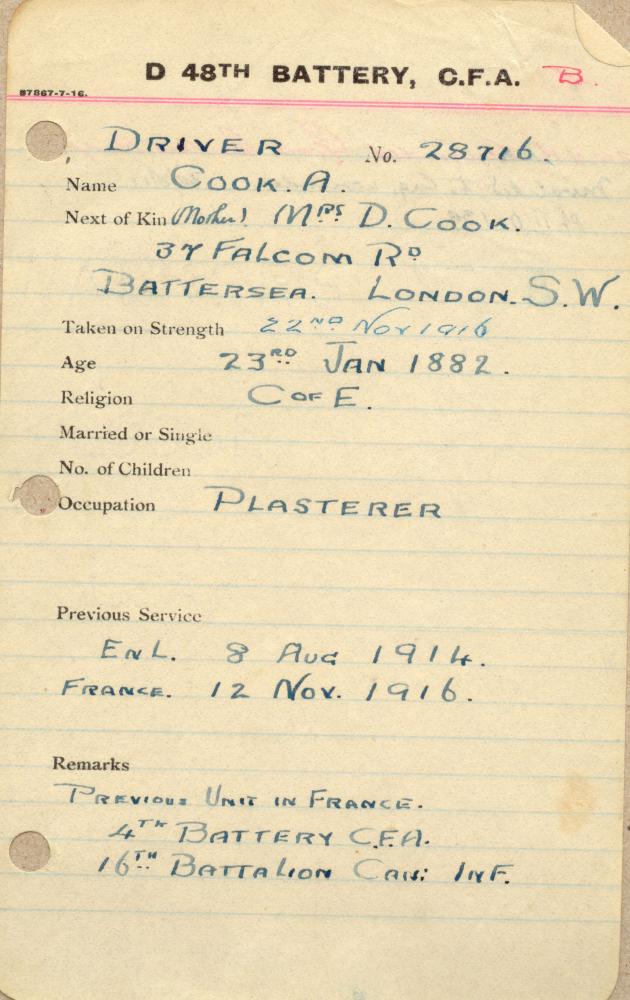 D 48TH BATTERY, C.F.A. B.
87867-7-16.
DRIVER No. 28716.
Name COOK. A.
Next of Kin (Mother) MRS D. COOK.
37 FALCOM RD
BATTERSEA. LONDON. S.W.
Taken on Strength 22ND NOV 1916
Age 23RD JAN 1882.
Religion C OF E.
Married or Single
No. of Children
Occupation PLASTERER
Previous Service
ENL. 8 AUG 1914.
FRANCE. 12 NOV. 1916.
Remarks
PREVIOUS UNIT IN FRANCE.
4TH BATTERY C.F.A.
16TH BATTALION CAN: INF.